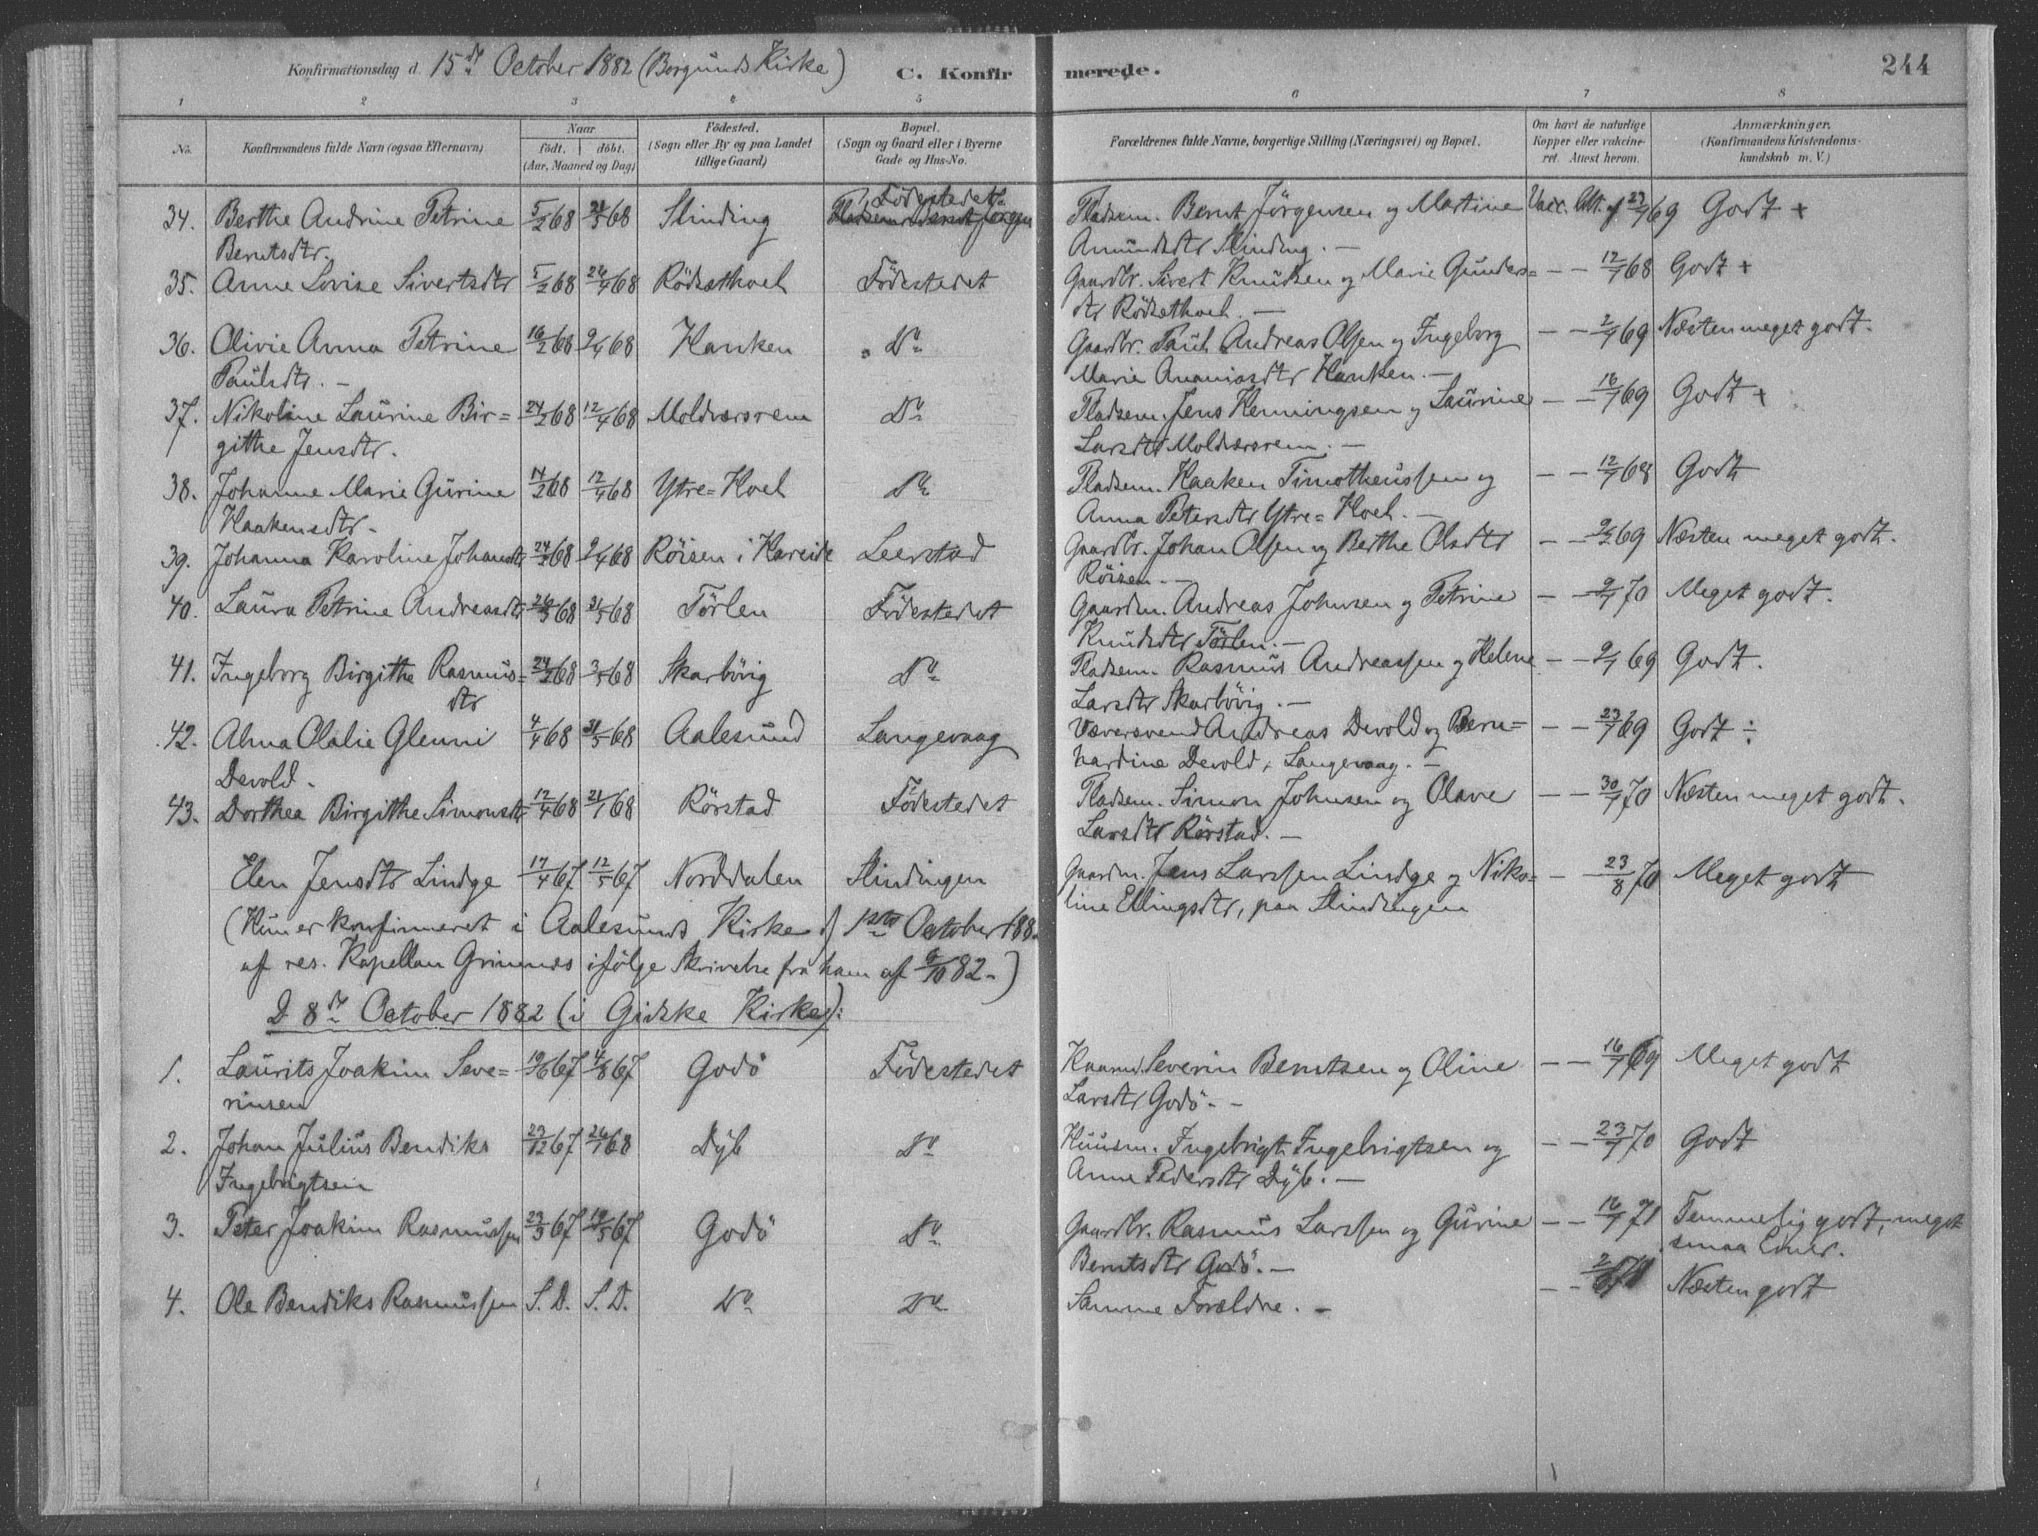 Konfirmationsdag d. 15de October 1882 (Borgunds Kirke) C. Konfirmerede. 244
1 2 3 4 5 6 7 8
No. Konfirmandens fulde Navn (ogsaa Efternavn) Naar født. døbt. (Aar, Maaned og Dag) Födested. (Sogn eller By og paa Landet tillige Gaard) Bopæl. (Sogn og Gaard eller i Byerne Gade og Hus-No. Forældrenes fulde Navne, borgerlige Stilling (Næringsvei) og Bopæl. Om havt de naturlige Kopper eller vakcineret. Attest herom. Anmærkninger. (Konfirmandens Kristendomskundskab m. V.)
34. Berthe Andrine Petrine 5/2 68 68 Slinding Födestedet Pladsem. Bernt Jörgensen og Martine Vacc. Att. af 23/7 69 Godt +
Berntsdtr. Amundsdtr Slinding. —
35. Anne Lovise Sivertsdtr 5/2 68 26/4 68 Rödsethoel Födestedet Gaardbr. Sivert Knudsen og Marie Gunders= — — 12/7 68 Godt +
dtr Rödsethoel. —
36. Olivie Anna Petrine 16/2 68 2/4 68 Hanken Do Gaardbr. Paul Andreas Olsen og Ingeborg — — 2/7 69 Næsten meget godt.
Paulsdtr. — Marie Ananiasdtr Hanken. —
37. Nikoline Laurine Bir= 24/2 68 12/4 68 Moldværsrem Do Pladsem. Jens Henningsen og Laurine — — 16/7 69 Godt +
githe Jensdtr. Larsdtr Moldværsrem. —
38. Johanne Marie Gurine 14/2 68 12/4 68 Ytre=Hoel Do Pladsem. Haaken Timotheussen og — — 12/7 68 Godt
Haakensdtr. Anna Petersdtr Ytre=Hoel. —
39. Johanna Karoline Johansdtr 24/2 68 2/4 68 Röisen i Hareide Leerstad Gaardbr. Johan Olsen og Berthe Olsdtr — — 69 Næsten meget godt.
Röisen. —
40. Laura Petrine Andreasdtr 26/3 68 31/5 68 Törlen Födestedet Gaardm. Andreas Johnsen og Petrine — — 9/7 70 Meget godt.
Knudsdtr Törlen. —
41. Ingeborg Birgithe Rasmus= 24/2 68 3/5 68 Skarbövig Do Pladsem. Rasmus Andreassen og Helene — — 9/7 69 Godt.
dtr Larsdtr Skarbövig. —
42. Alma Olalie Glenni 4/4 68 31/5 68 Aalesund Langevaag Væversvend Andreas Devold og Bern= — — 23/7 69 Godt ÷
Devold. hardine Devold, Langevaag. —
43. Dorthea Birgithe Simonsdtr 12/4 68 68 Rörstad Födestedet Pladsem. Simon Johnsen og Olave — — 30/7 70 Næsten meget godt.
Larsdtr Rörstad. —
Elen Jensdtr Lindge 17/4 67 12/5 67 Norddalen Slindingen Gaardm. Jens Larssen Lindge og Niko= — — 23/8 70 Meget godt
line Ellingsdtr, paa Slindingen
(Hun er konfirmeret i Aalesunds Kirke d 1ste October 188
af res. Kapellan Grimnes ifölge Skrivelse fra ham af 6/10 82.)
D 8de October 1882 (i Gidske Kirke):
1. Laurits Joakim Seve= 19/6 67 4/8 67 Godö Födestedet Severin Berntsen og Oline — — 16/7 69 Meget godt
rinsen Larsdtr Godö. —
2. Johan Julius Bendiks 23/12 67 26/1 68 Dyb Do Huusm. Ingebrigt Ingebrigtsen og — — 23/7 70 Godt
Ingebrigtsen Anne Pedersdtr Dyb. —
3. Peter Joakim Rasmussen 23/3 67 19/5 67 Godö Do Gaardbr. Rasmus Larssen og Gurine — — 16/7 71 Temmelig godt, meget
Berntsdtr Godö. — smaa Evner.
4. Ole Bendiks Rasmussen S. D. S. D. Do Do Samme Forældre. — — — 71 Næsten godt